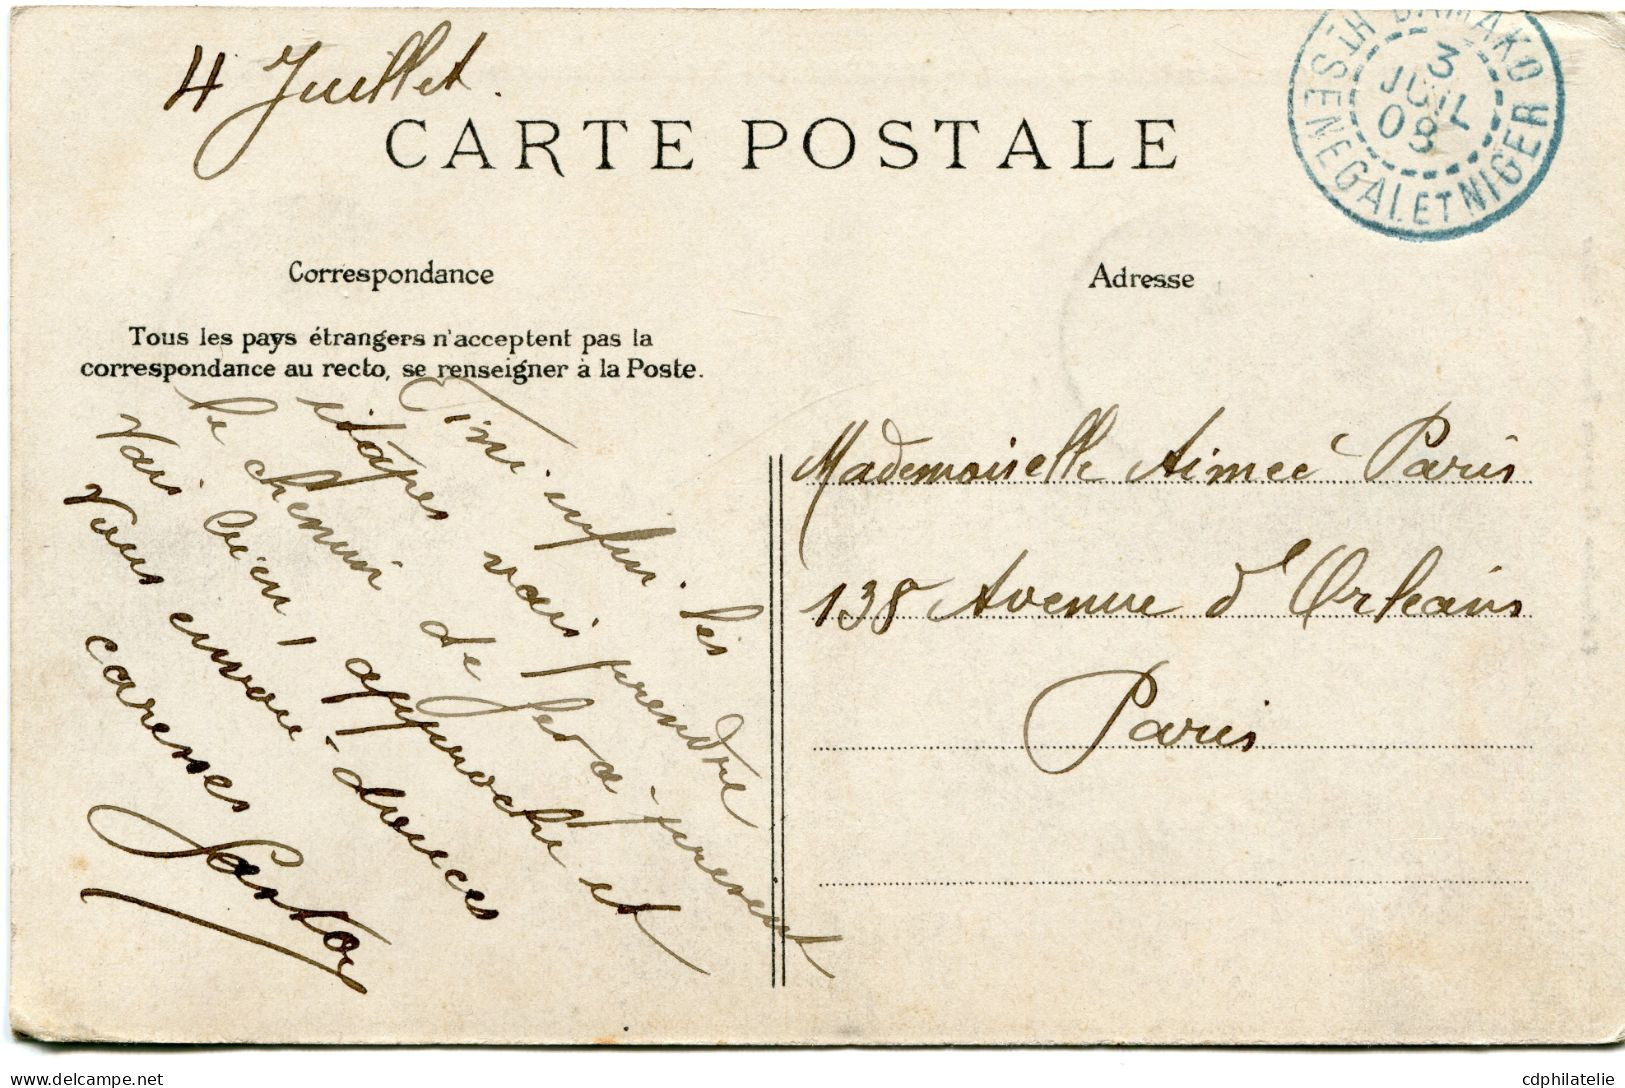 4 Juillet.
CARTE POSTALE
BAMAKO
HT SSENEGAL ET NIGER
3
JUIL
08
Correspondance
Adresse
Tous les pays étrangers n'acceptent pas la
correspondance au recto, se renseigner à la Poste.
Fini enfin. les
étapes vais prendre
le chemin de fer à présent
Vais bien, approche et
vous envoie douces
caresses
Mademoiselle Aimée Paris
138 Avenue d'Orléans
Paris
cdphilatelie